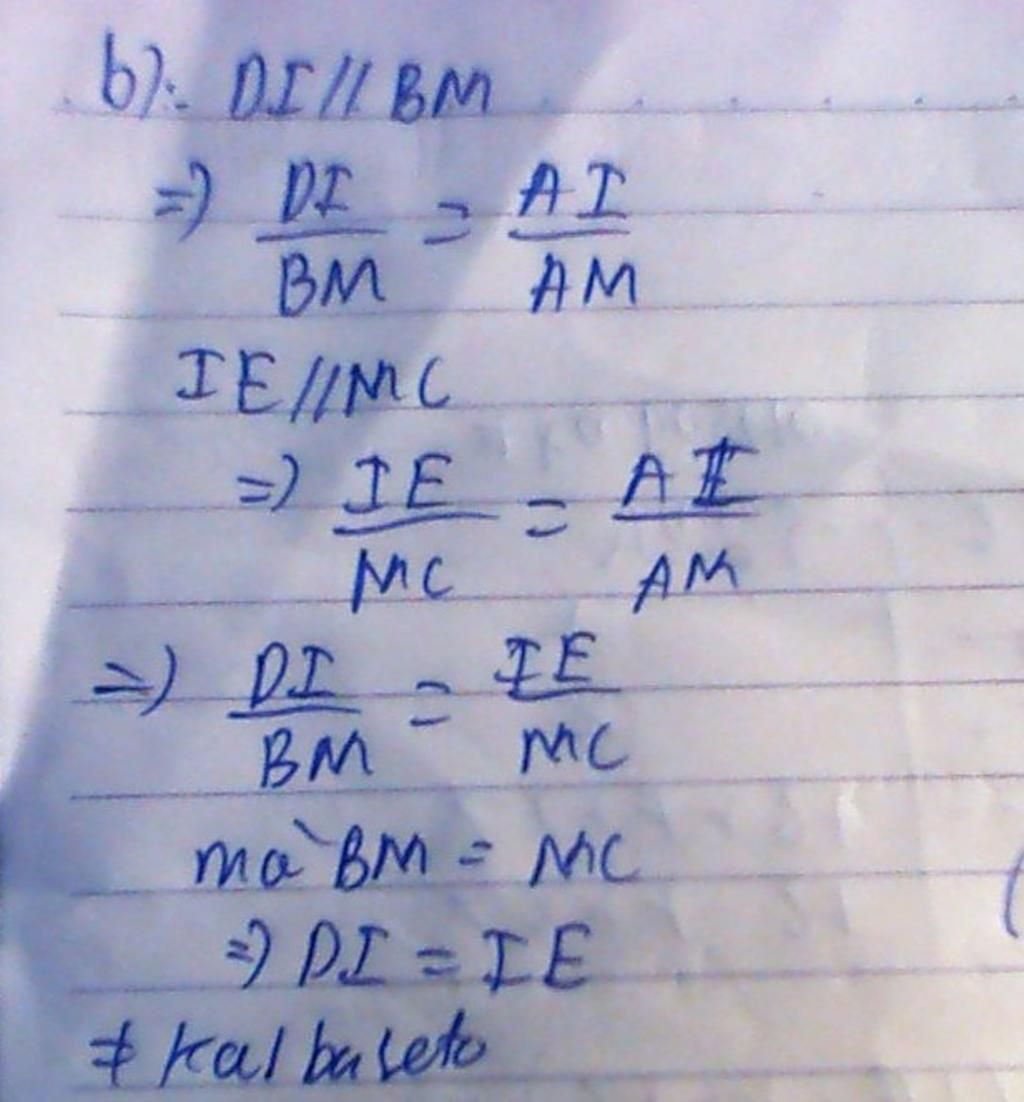 b). DI // BM
=> DI/BM = AI/AM
IE // MC
=> IE/MC = AI/AM
=> DI/BM = IE/MC
mà BM = MC
=> DI = IE